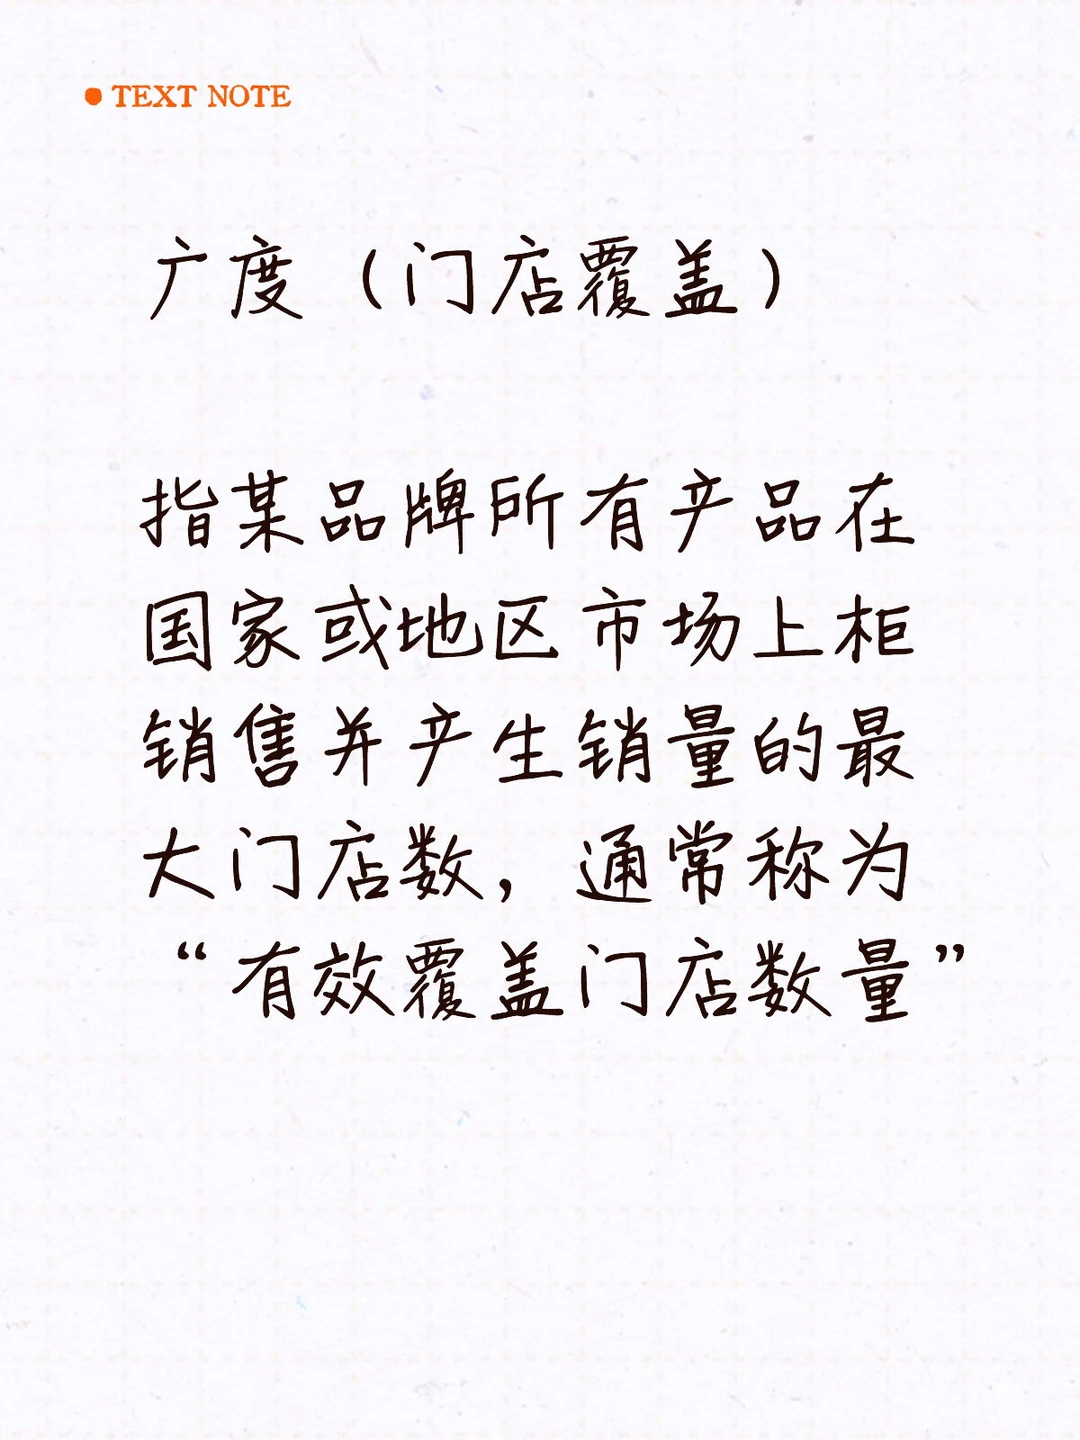 TEXT NOTE
广度（门店覆盖）
指某品牌所有产品在
国家或地区市场上柜
销售并产生销量的最
大门店数，通常称为
“有效覆盖门店数量”